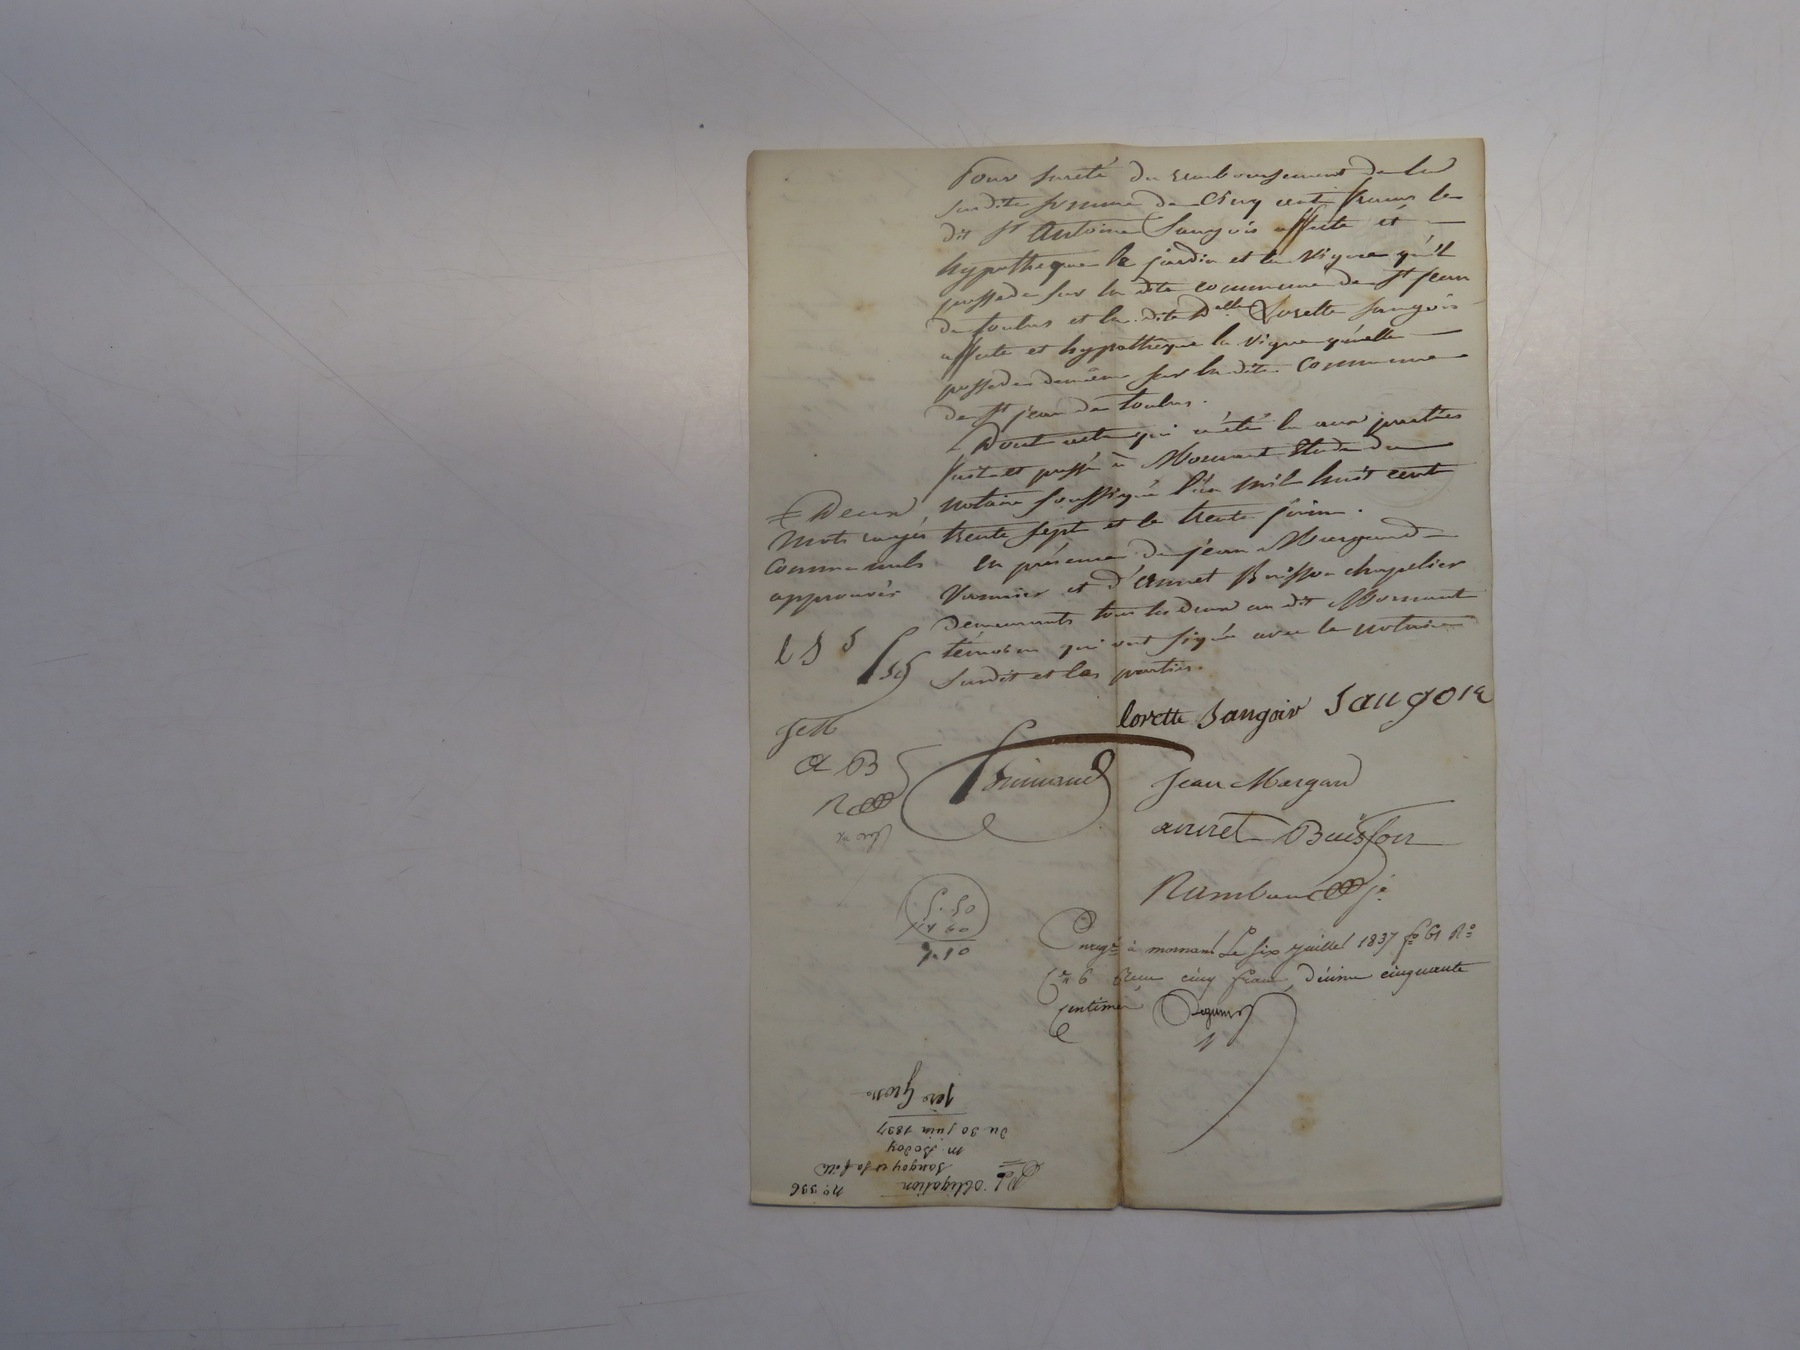 Pour sureté du remboursement de la
susdite somme de Cinq cent francs le
dit St Antoine Sangois affecte et
hypotheque le jardin et la vigne qu'il
possede sur la dite commune de St jean
de toulas et la dite Delle Lorette sangois
affecte et hypotheque la vigne qu'elle
possede de même sur la dite Commune
de St jean de toulas.
Dont acte qui a été lu aux parties
fait et passé à Mornant Etude du
notaire soussigné l'an mil huit cent
trente sept et le trente juin.
En présence de jean Margand
Vannier et d'annet Buisson chapelier
demeurants tous les deux au dit Mornant
témoins qui ont signé avec le notaire
susdit et les parties.
Deux
mots rayés
comme nuls
approuvés
l S
A B
lorette Sangoir Sangoie
Jean Margand
annet Buisson
Enregé à mornant Le six juillet 1837 fo 61 Ro
Ce 6 Reçu cinq francs, décime cinquante
centimes
5.50
1.60
7.10
No 336
obligation
Sangoy et sa fille
m Bodoy
du 30 juin 1837
1ere Grosse